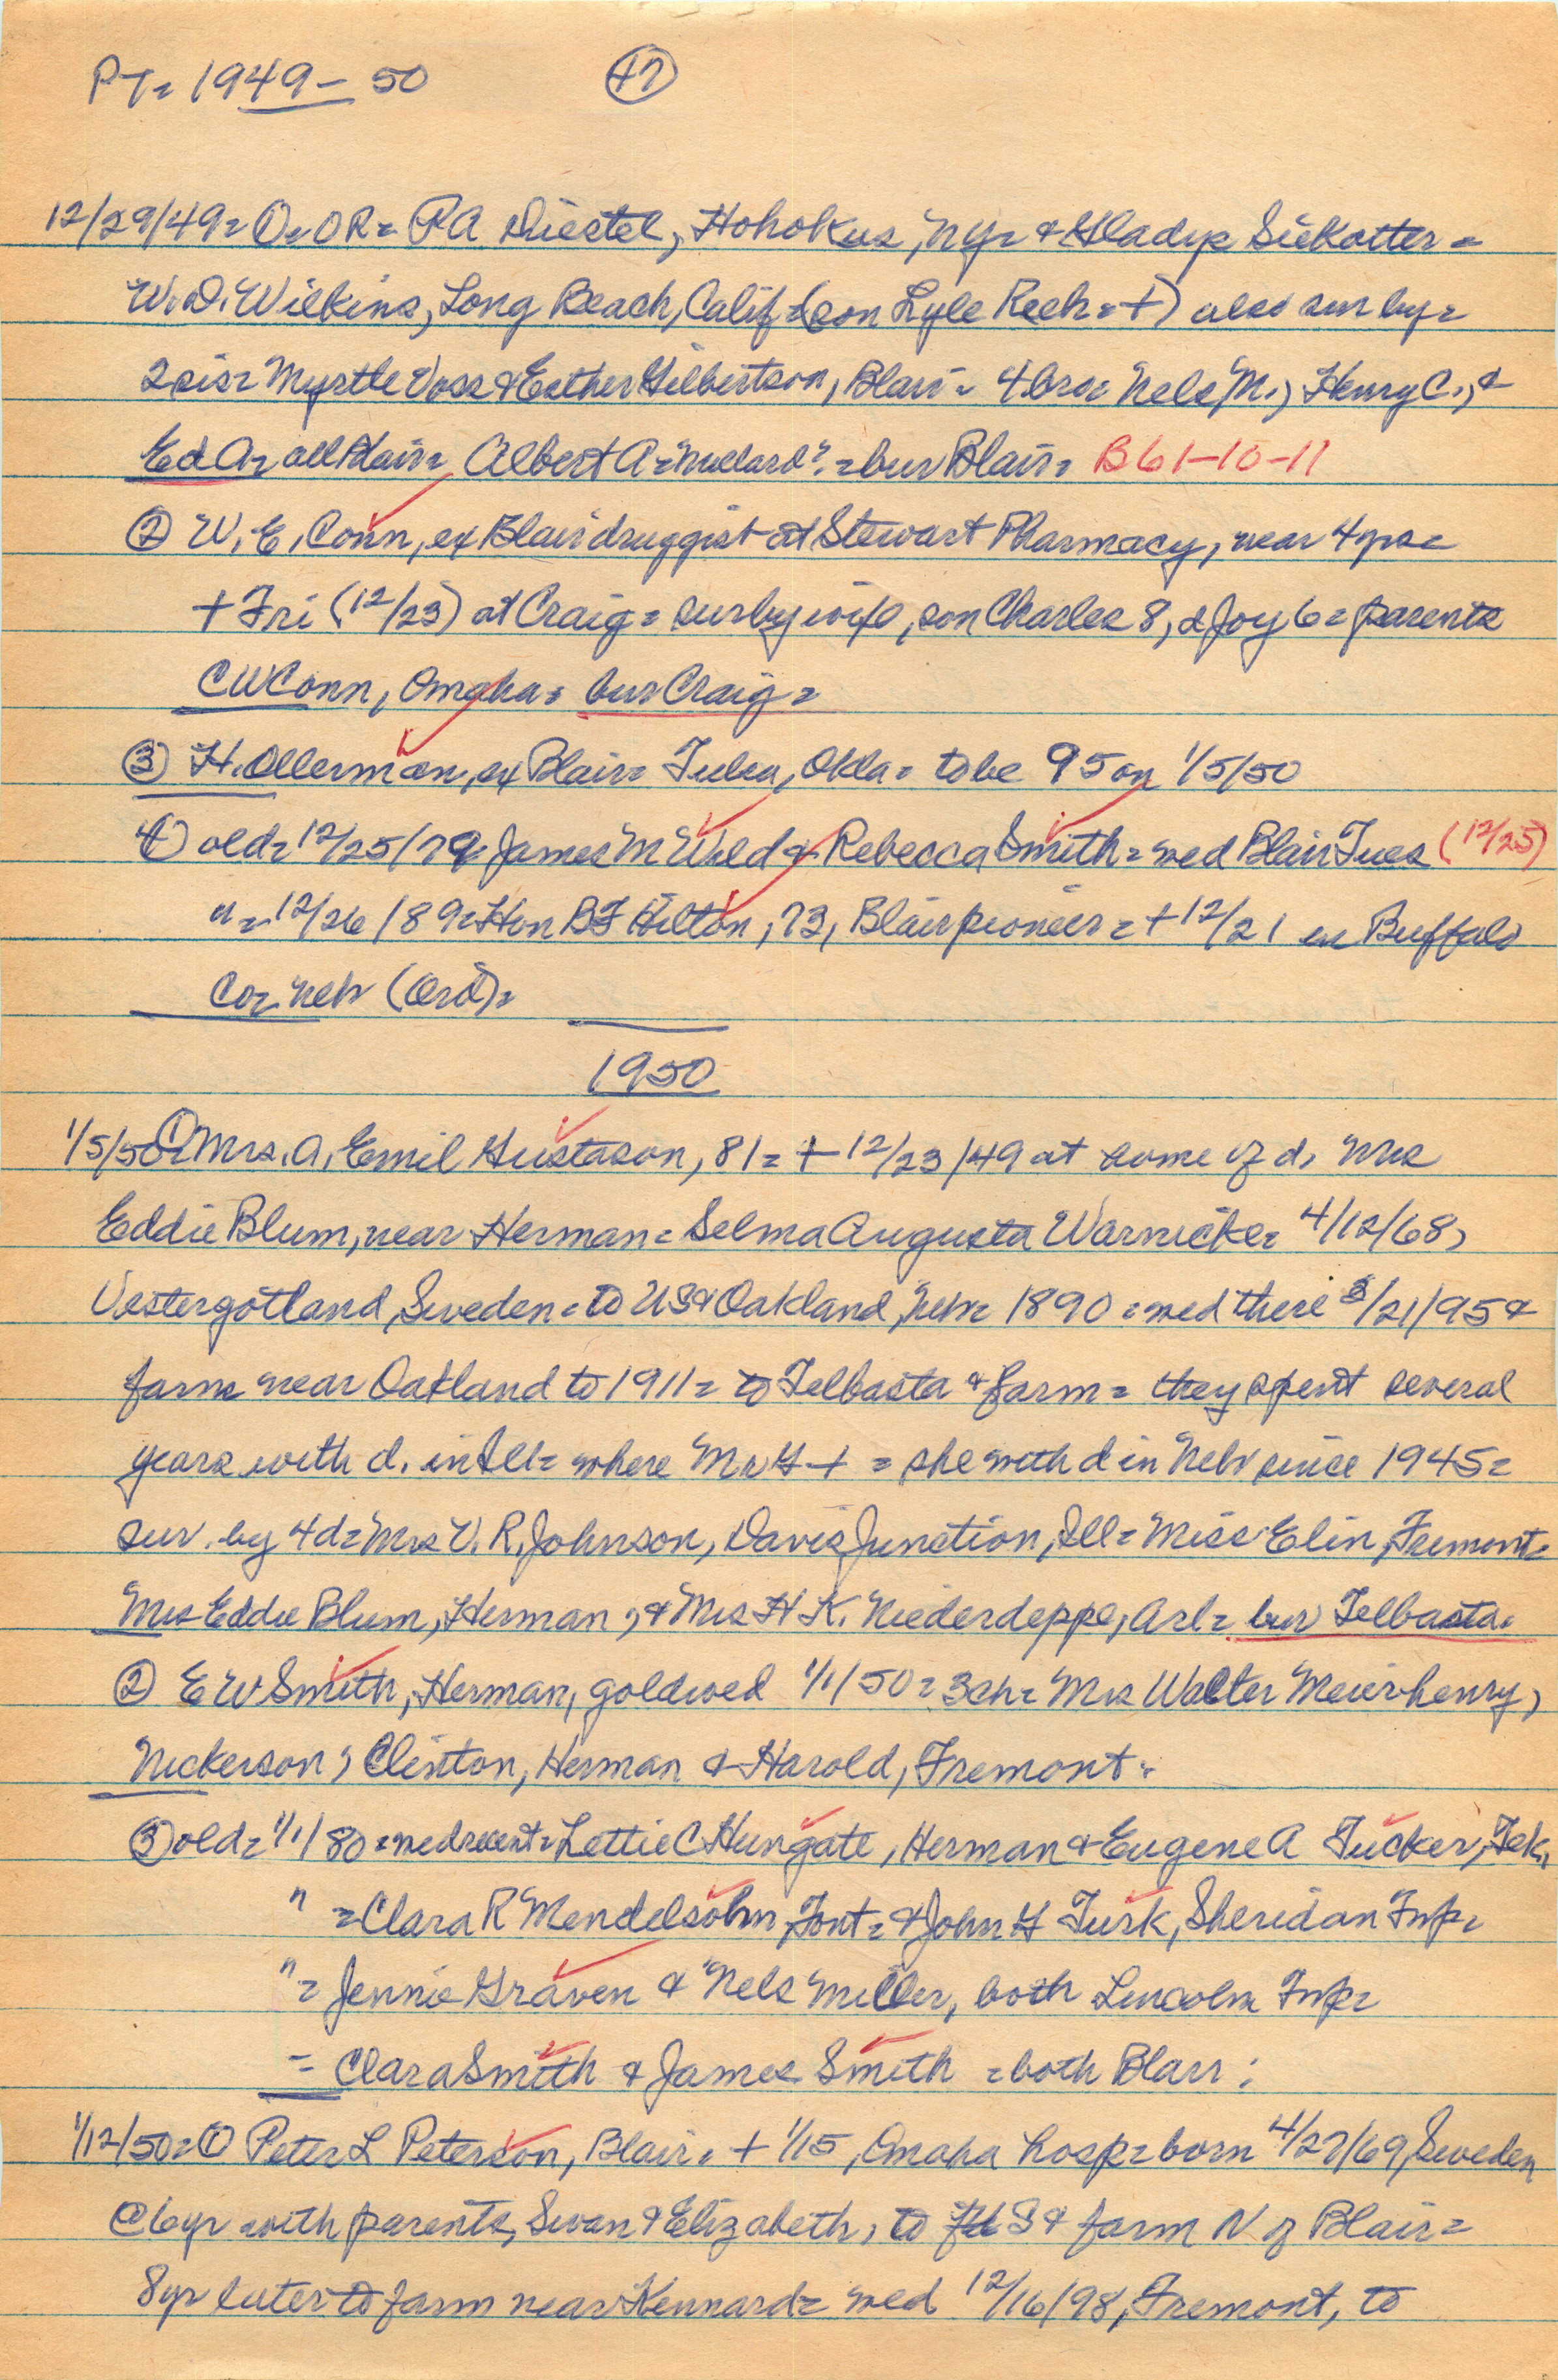 PT= 1949-50 47
12/29/49= ①=OR= RA Diestel, Hohokus, Ny= & Gladys Siekotter=
W.D. Wilkins, Long Beach, Calif= (son Lyle Reeh=+) also sur by=
2sis= Myrtle Voss & Esther Gilbertson, Blair= 4bro= Nels M., Henry C., &
Ed A= all Blair= Albert A= Willard?= bur Blair= B61-10-11
② W.E. Conn, ex Blair druggist at Stewart Pharmacy, near 4yrs=
+ Fri (12/23) at Craig= sur by wife, son Charles 8, d Joy 6= parents
CW Conn, Omaha= bur Craig=
③ H. Ollerman, ex Blair= Tulsa, Okla= to be 95 on 1/5/50
④ old= 12/25/79= James M Wild & Rebecca Smith= wed Blair Tues (12/25)
"= 12/26/89= Hon BF Hilton, 73, Blair pioneer= + 12/21 in Buffalo
Co= Nebr (Ord)=
1950
1/5/50= ① Mrs. A. Emil Gustason, 81= + 12/23/49 at home of d. Mrs
Eddie Blum, near Herman= Selma Augusta Warnicke= 4/12/68,
Vestergotland, Sweden= to US & Oakland, Nebr= 1890= wed there 3/21/95 &
farm near Oakland to 1911= to Telbasta & farm= they spent several
years with d. in Ill= where Mr G += she with d in Nebr since 1945=
sur. by 4d= Mrs V.R. Johnson, Davis Junction, Ill= Miss Elin, Fremont=
Mrs Eddie Blum, Herman, & Mrs H K. Niederdeppe, Arl= bur Telbasta=
② E W Smith, Herman, gold wed 1/1/50= 3ch= Mrs Walter Meierhenry,
Nickerson, Clinton, Herman & Harold, Fremont=
③ old= 1/1/80= wed recent= Lettie C Hungate, Herman & Eugene A Tucker, Tek.
" = Clara R Mendelsohn, Font= & John H Turk, Sheridan Twp=
"= Jennie Graven & Nels Miller, both Lincoln Twp=
= Clara Smith & James Smith= both Blair:
1/12/50= ① Peter L Peterson, Blair= + 1/15, Omaha hosp= born 4/27/69, Sweden
@6yr with parents, Swan & Elizabeth, to US & farm N of Blair=
8yr later to farm near Kennard= wed 12/16/98, Fremont, to